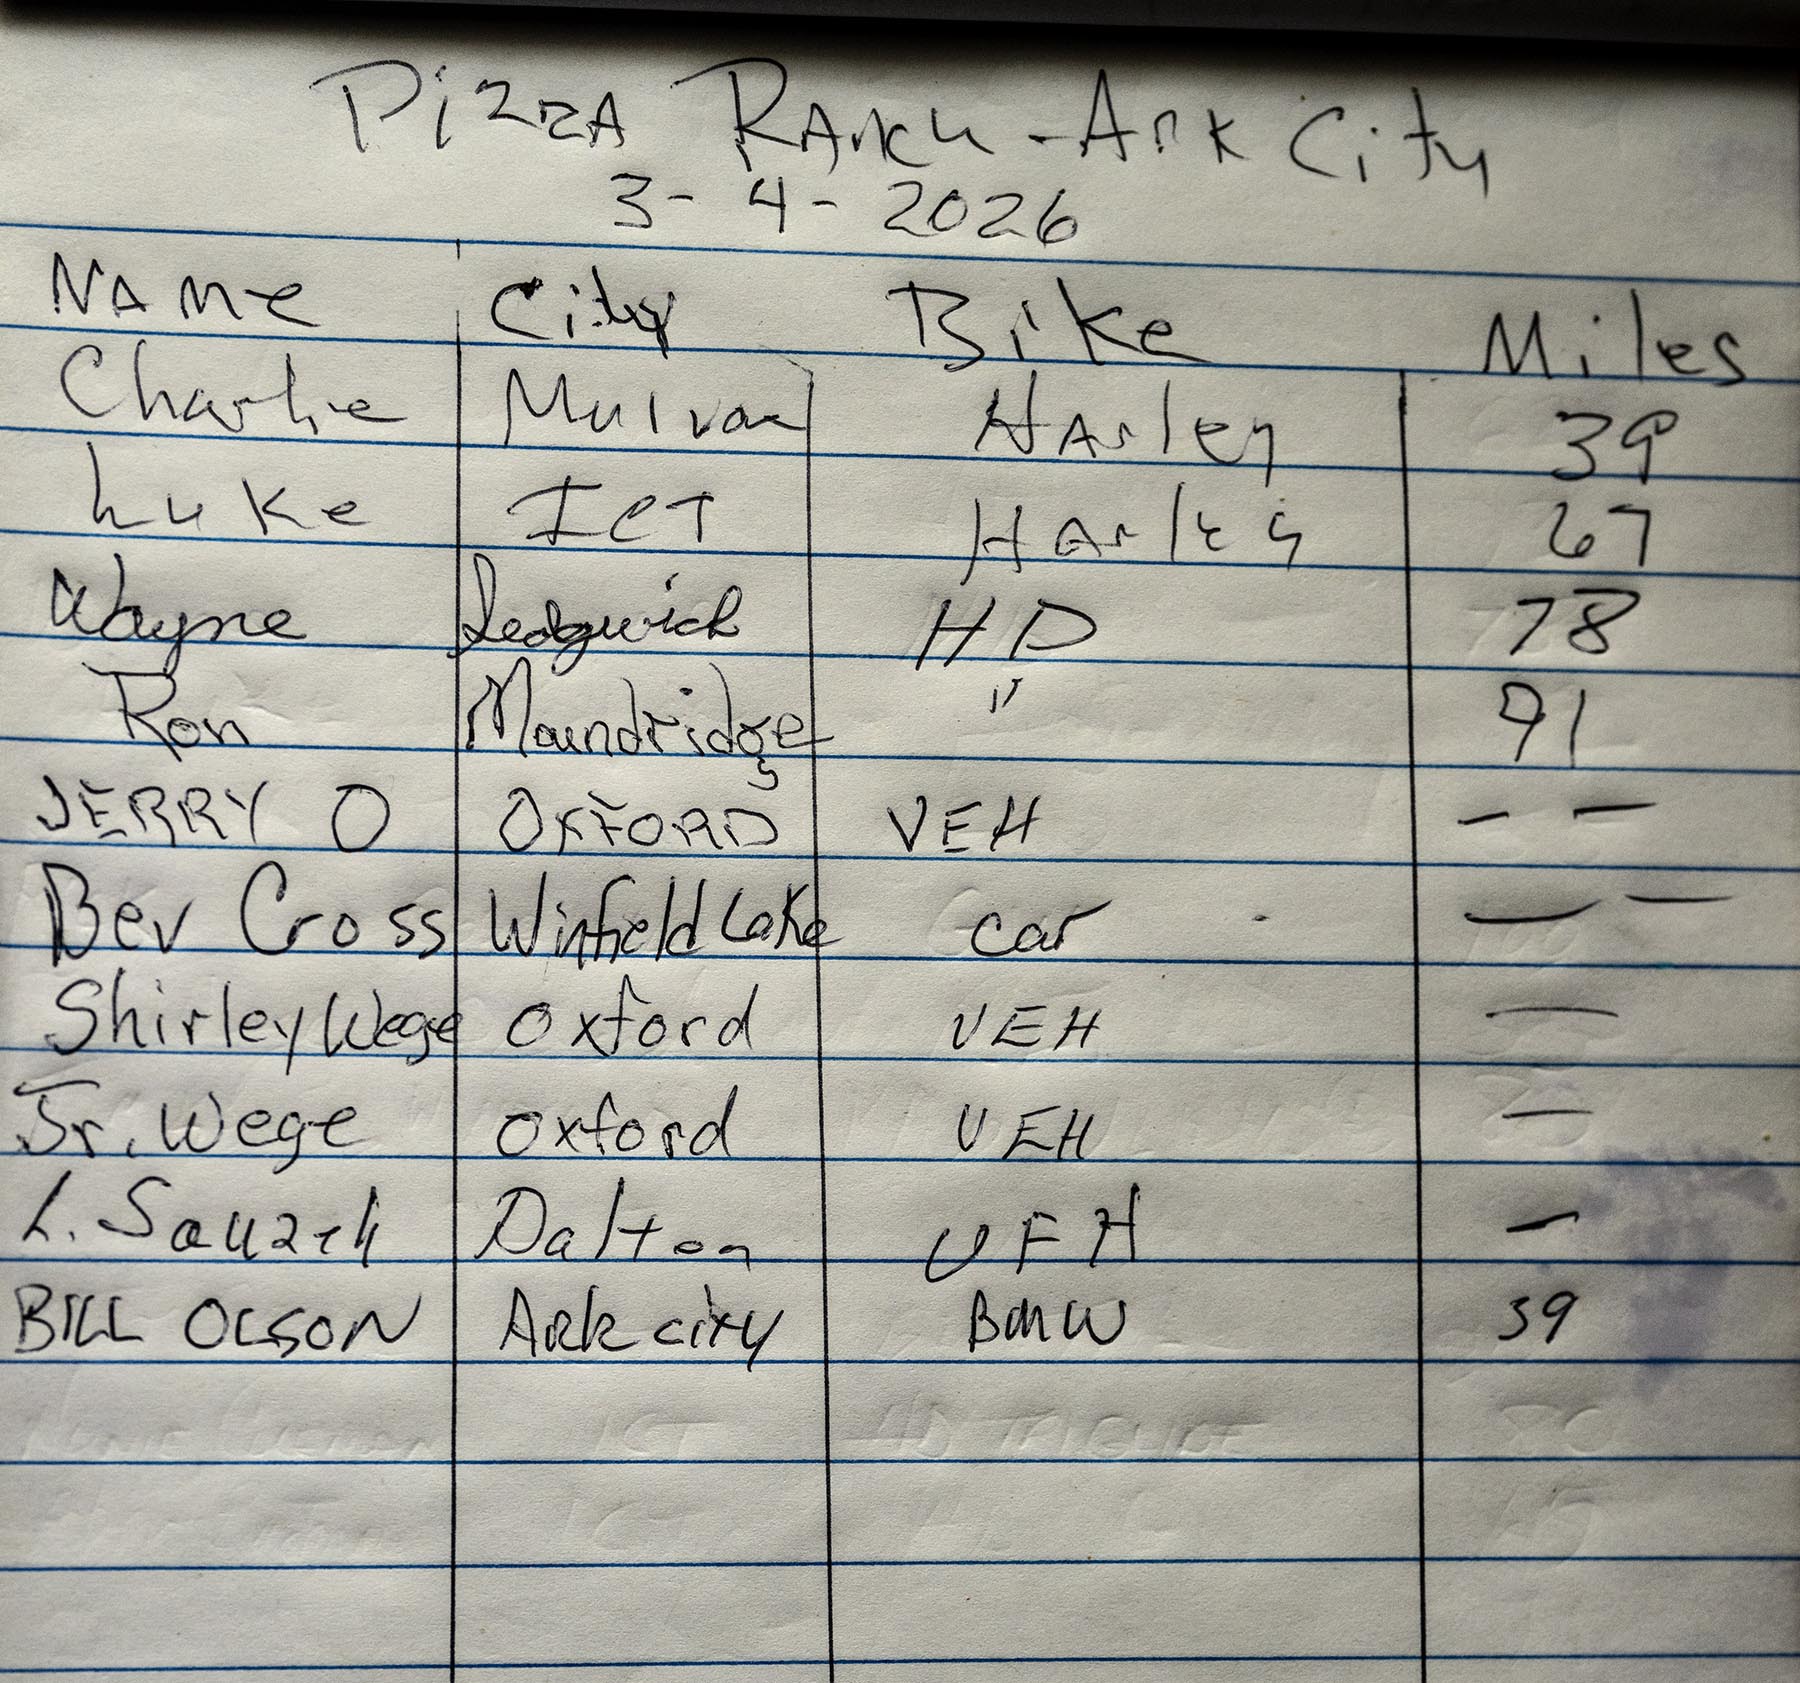 PIZZA RANCH - ARK City
3-4-2026
NAME City Bike Miles
Charlie Mulvane Harley 39
Luke ICT Harley 67
Wayne Sedgwick HD 78
Ron Moundridge " 91
JERRY O OXFORD VEH - -
Bev Cross Winfield Lake car — —
Shirley Wege Oxford VEH —
Jr. Wege Oxford VEH —
L. Dalton VEH —
BILL OLSON Ark city BMW 39